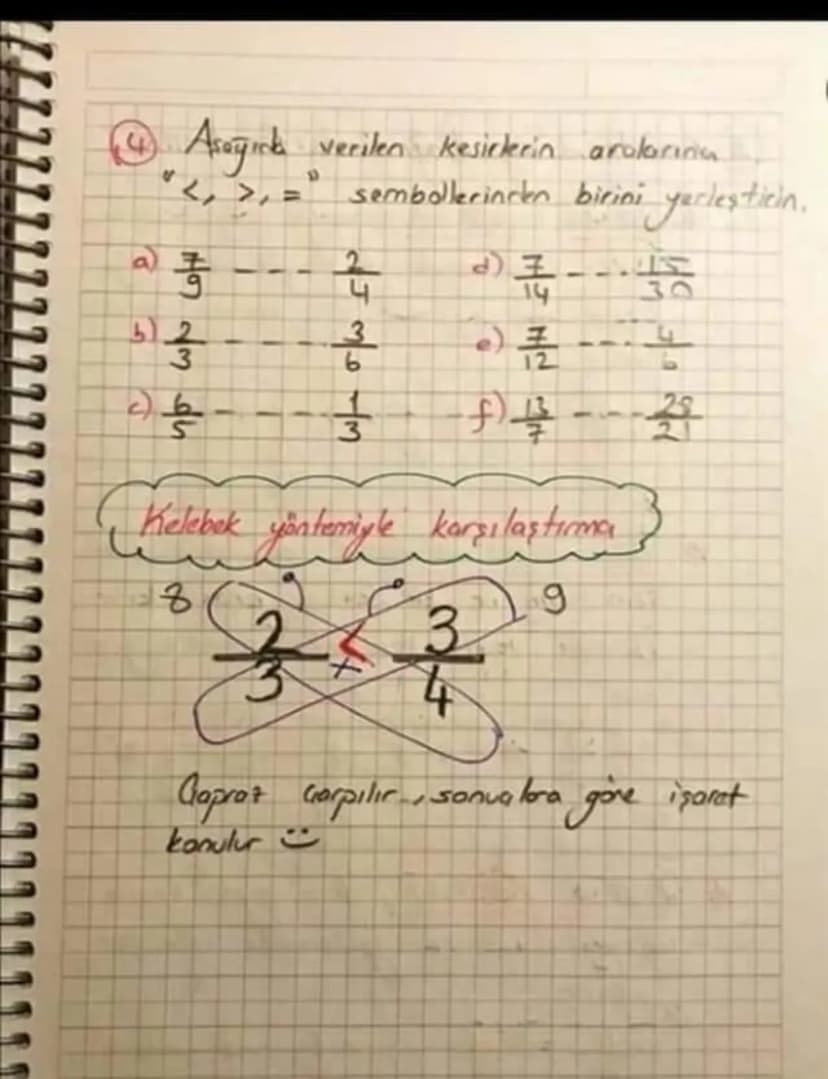 4) Aşağıda verilen kesirlerin aralarına
"<, >, =" sembollerinden birini yerleştirin.
a) 7/9 ---- 2/4
d) 7/14 ---- 15/30
b) 2/3 ---- 3/6
e) 7/12 ---- 4/6
c) 6/5 ---- 1/3
f) 13/7 ---- /21
Kelebek yöntemiyle karşılaştırma
8 2/3 < 3/4 9
x
Çapraz çarpılır, sonuçlara göre işaret
konulur